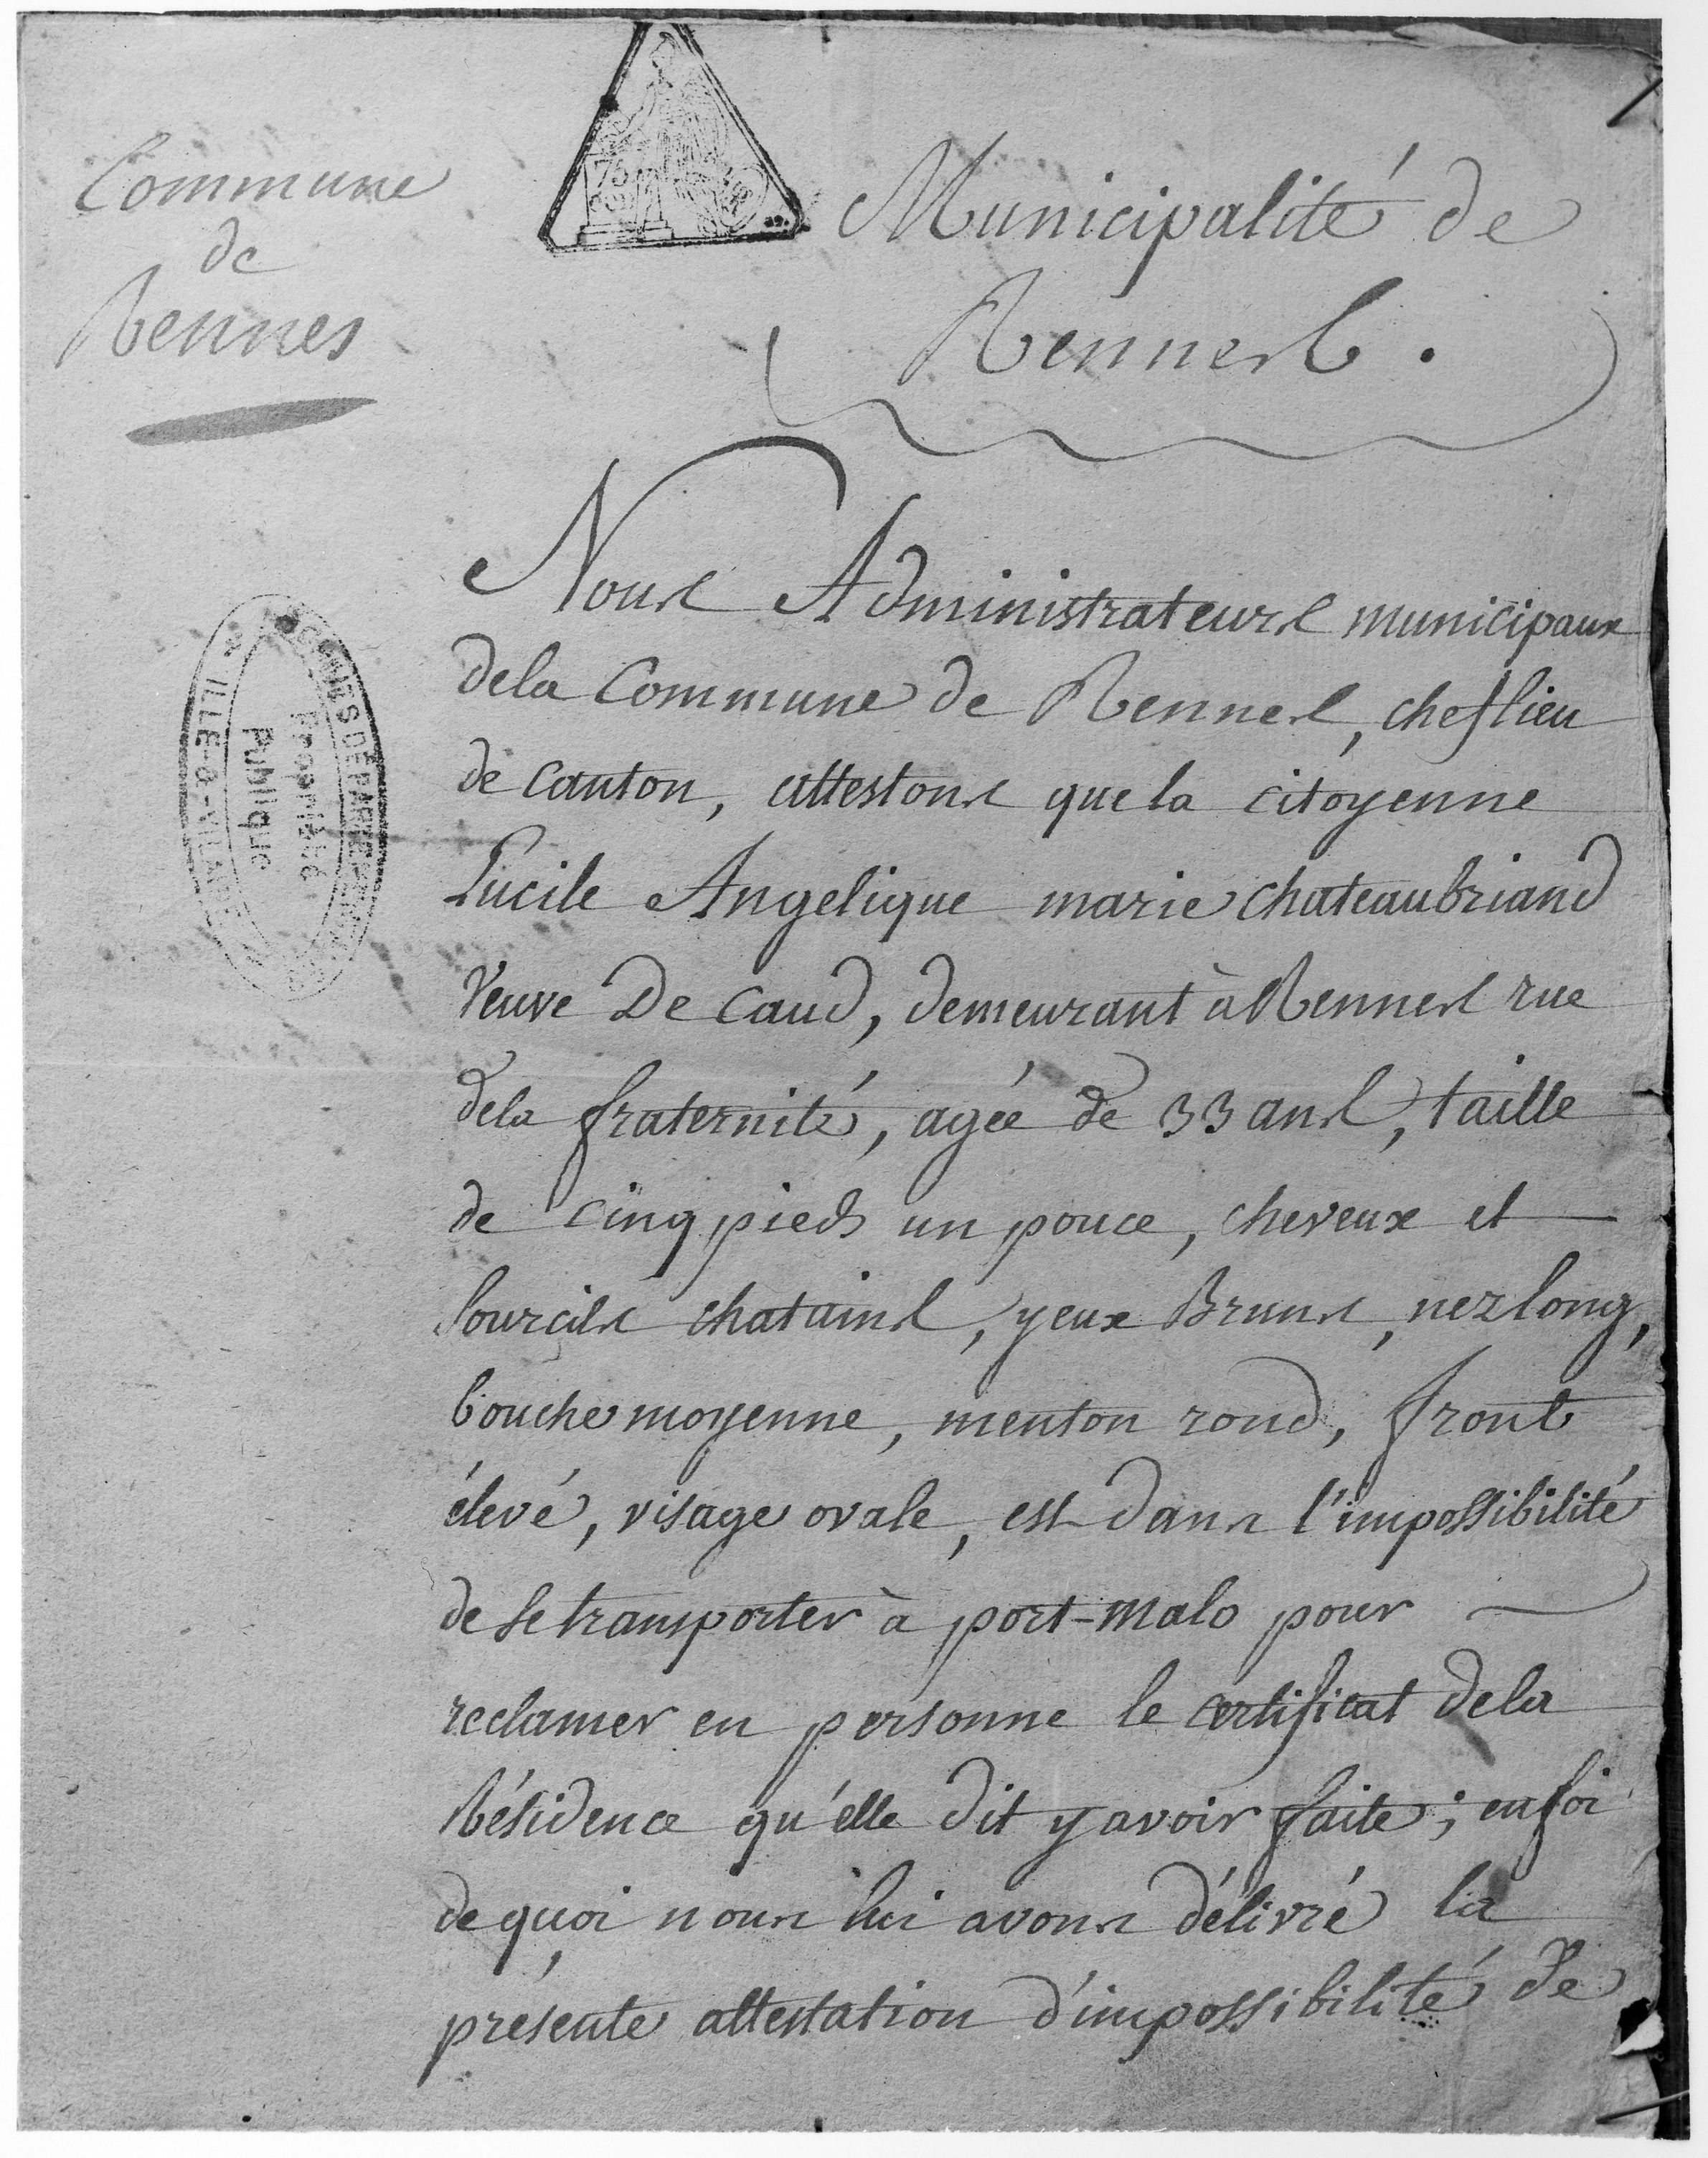 Commune
de
Rennes
Municipalité de
Rennes.
75
ARCHIVES DÉPARTEMENTALES
Propriété
Publique
ILLE-&-VILAINE
Nous Administrateurs municipaux
dela Commune de Rennes, cheflieu
de Canton, attestons que la citoyenne
Lucile Angelique marie chateaubriand
Veuve De Caud, demeurant à Rennes rue
dela fraternité, agée de 33 ans, taille
de cinq pieds un pouce, cheveux et
sourcils chatains, yeux Bruns, nez long,
bouche moyenne, menton rond, front
élevé, visage ovale, est dans l'impossibilité
de se transporter à port-malo pour
reclamer en personne le certificat dela
Résidence qu'elle dit y avoir faite; en foi
de quoi nous lui avons délivré la
présente attestation d'impossibilité de